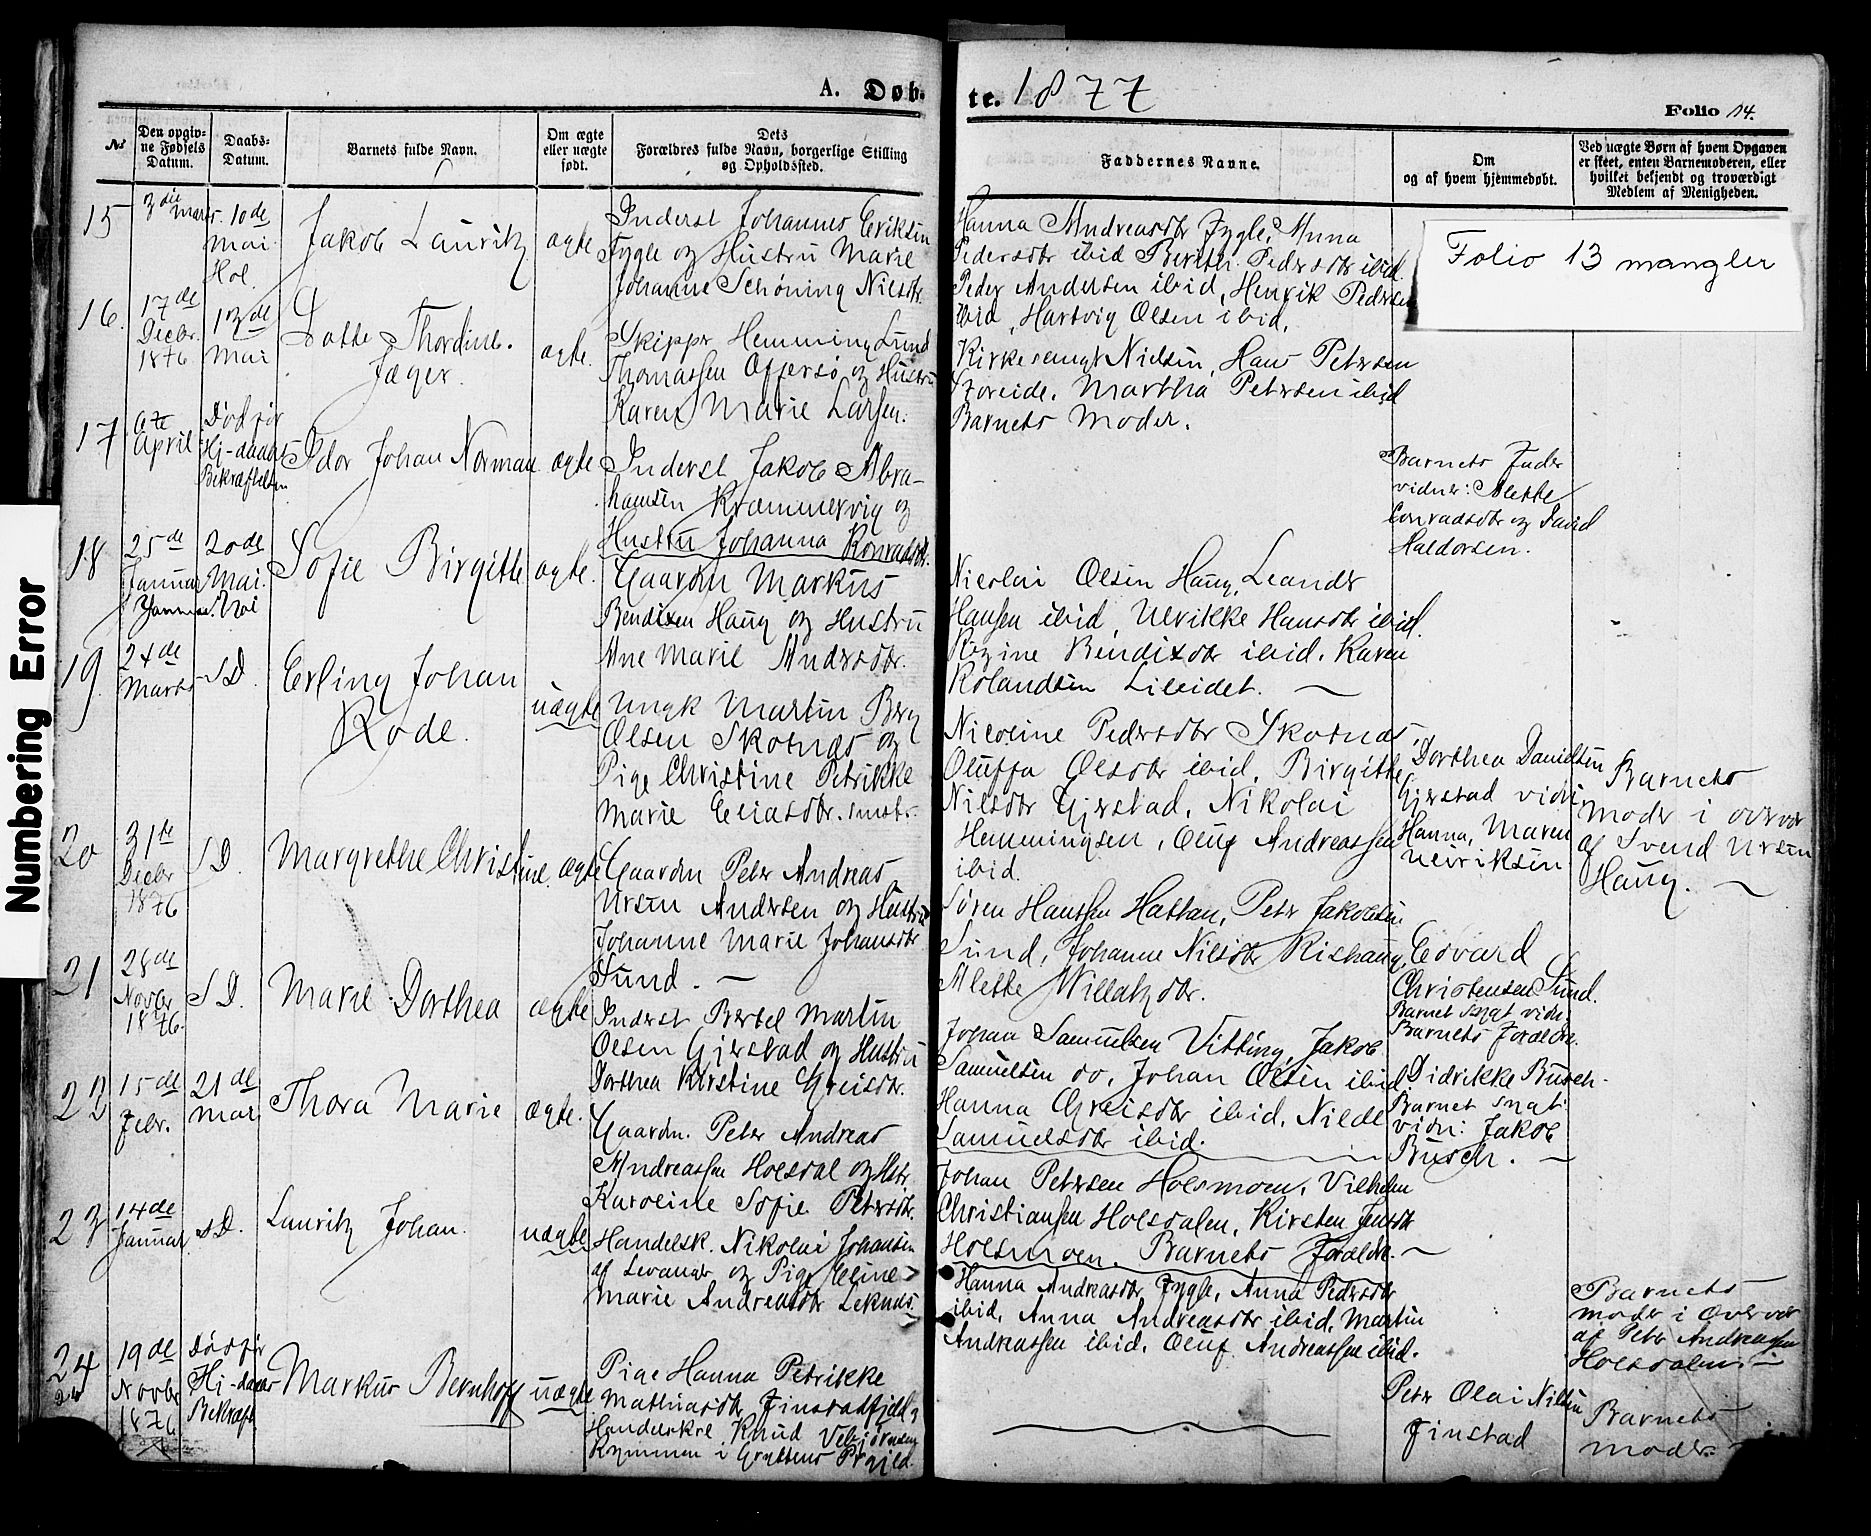 A. Døb-
te. 1877
Folio 14.
No
Den opgiv-
ne Fødsels
Datum.
Daabs-
Datum.
Barnets fulde Navn.
Om ægte
eller uægte
født.
Dets
Forældres fulde Navn, borgerlige Stilling
og Opholdssted.
Faddernes Navne.
Om
og af hvem hjemmedøbt.
Ved uægte Børn af hvem Opgaven
er skeet, enten Barnemoderen, eller
hvilket bekjendt og troværdigt
Medlem af Menigheden.
Folio 13 mangler
Numbering Error
15
3die Marts
10de
Mai
Hol.
Jakob Lauritz
ægte
Inderst Johannes Eriksen
Fygle og Hustru Marie
Johanne Schøning Nilsdtr.
Hanna Andreasdtr Fygle, Anna
Pedersdtr ibid Pedersdtr ibid.
Peder Andersen ibid, Henrik Pedersen
ibid, Hartvig Olsen ibid.
16.
17de
Decbr.
1876
13de
Mai
Lotte Thordine
Jæger.
ægte.
Skipper Hemming Lund
Thomassen Offersø og Hustru
Karen Marie Larsen.
Kirkesangr Nielsen, Hans Petersen
Storeide, Martha Petersen ibid
Barnets Moder.
17
April
Død før
Hj-daabs
Bekræftelsen
Johan Norman
ægte
Inderst Jakob Abra-
hamsen Kræmmervig og
Hustru Johanna Konradsdtr.
Barnets Fader
vidner: Alette
Conradsdtr og David
Haldorsen.
18
25de
Januar
Januar.
20de
Mai.
Hol
Sofie Birgitte
ægte.
Gaardm Markus
Bendixen Haug og Hustru
Ane Marie Andersdtr.
Nicolai Olsen Haug, Leander
Hansen ibid, Ulrikke Hansdtr ibid.
Regine Bendixdtr ibid. Karen
Rolandsen Lileidet.
19.
24de
Marts
s D.
Erling Johan
Rode.
uægte
Ungk Martin Berg
Olsen Skotnæs og
Pige Christine Petrikke
Marie Eliasdtr.
Nicoline Pedersdtr Skotnæs,
Oluffa Olsdtr ibid, Birgitte
Nilsdtr Gjerstad, Nikolai
Hemmingsen, Oluf Andreassen
ibid.
Dorthea Danielsen
Gjerstad vidn
Hanna, Maren
Ulriksen
Barnets
Moder i overvær
af Svend Ursin
Haug.
20
31te
Decbr
1876
s D.
Margrethe Christine.
ægte
Gaardm Peter Andreas
Ursin Andersen og Hustru
Johanne Marie Johansdtr
Sund.
Søren Hanssen Hattan, Peter Jakobsen
Sund, Johanne Nilsdtr Rishaug,
Alette Willatzdtr.
Edvard
Christensen Sund.
Barnet svagt vidn.
Barnets Forældre.
21
28de
Novbr
1876.
s D.
Marie Dorthea
ægte
Inderst Bertel Martin
Olsen Gjerstad og Hustru
Dorthea Kirstine Greisdtr.
Johan Samuelsen Vitting, Jakob
Samuelsen do, Johan Olsen ibid
Hanna Greisdtr ibid, Nilde
Samuelsdtr ibid.
Didrikke Busch.
Barnet svagt.
vidn: Jakob
Busch.
22
15de
Febr.
21de
Mai
Thora Marie
ægte.
Gaardm. Peter Andreas
Andreassen Holsdal og Hstr
Karoline Sofie Petersdtr.
Johan Petersen Holsmoen, Vilhelm
Christiansen Holsdalen, Kirsten Jensdtr
Holsmoen. Barnets Forældre.
23
14de
Januar
s D.
Lauritz Johan.
uægte
Handelsk. Nikolai Johansen
af Levanger og Pige Eline
Marie Andreasdtr Leknæs.
Hanna Andreasdtr Fygle, Anna Pedersdtr
ibid, Anna Andreasdtr ibid, Martin
Andreassen ibid, Oluf Andreassen ibid.
Barnets
Moder i Overvær
af Peter Andreassen
Holsdalen
24
24
19de
Novbr
1876
Død før
Hj-daabs
Bekræft
Markus Bernhoff
uægte
Pige Hanna Petrikke
Mathiasdtr Finstadfjeld,
Handelskrl Knud
i Gryttens Prgjeld.
Peter Olai Nilsen
Finstad
Barnets
Moder.